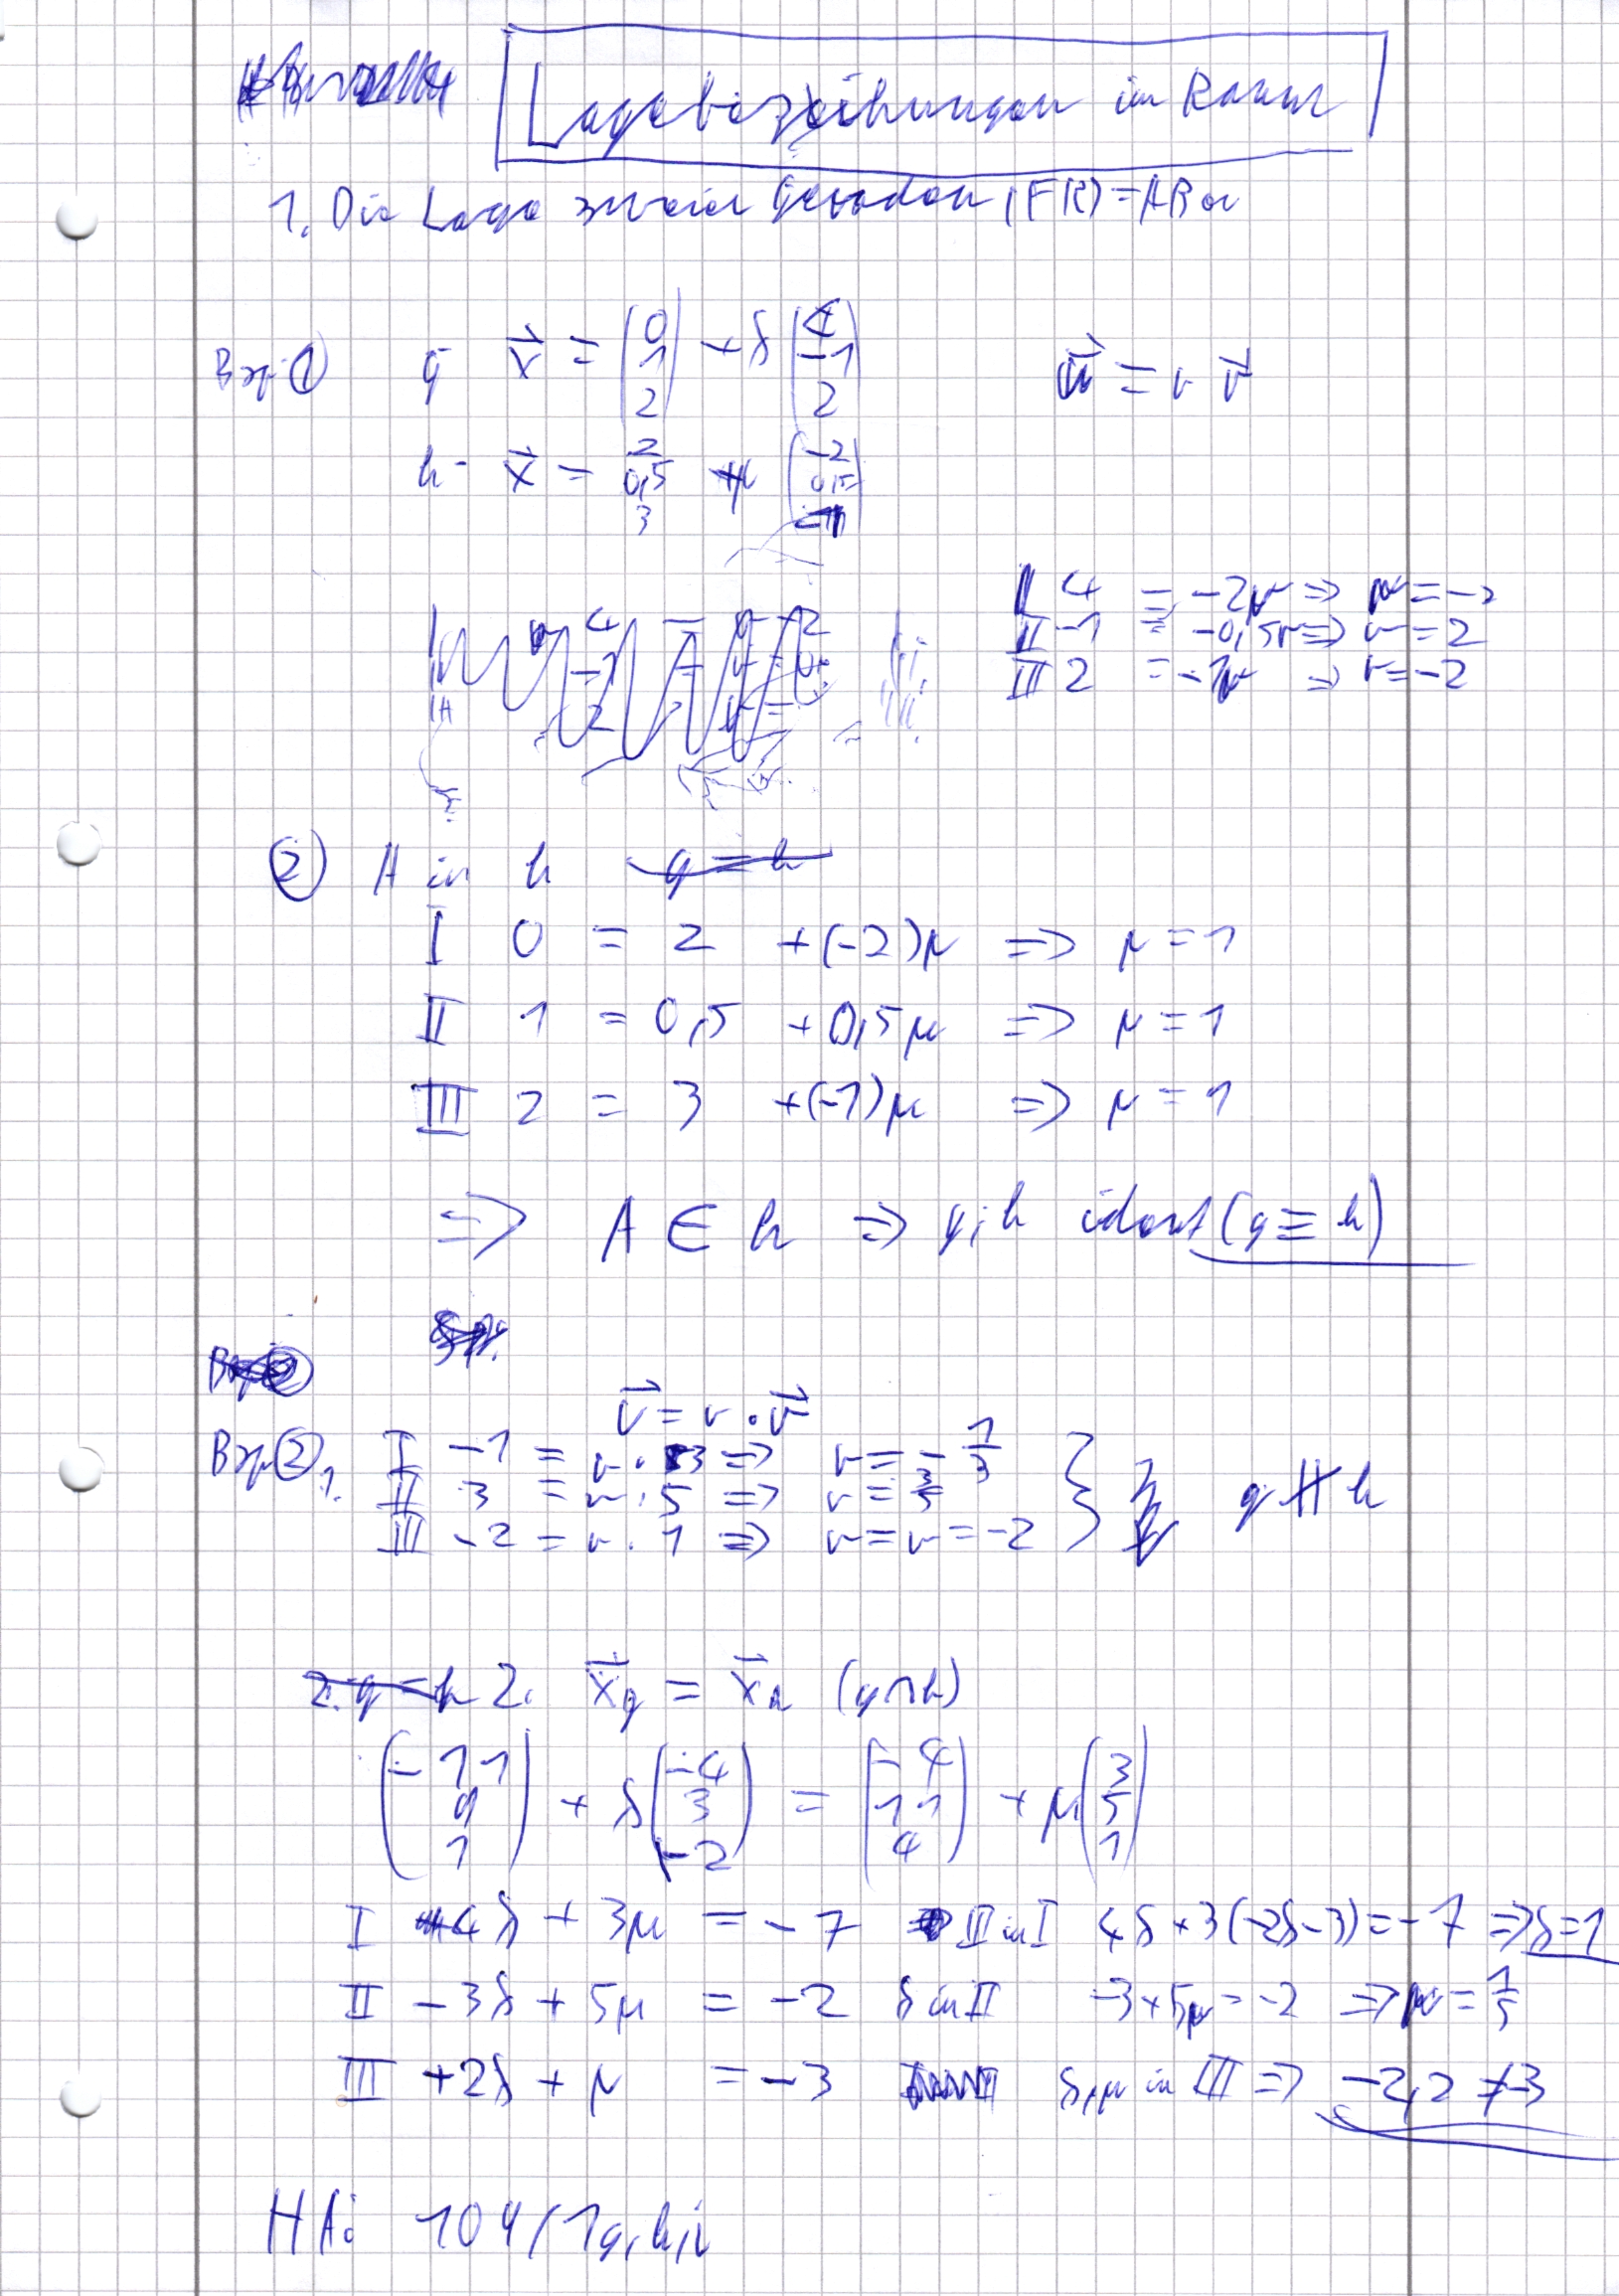 Lagebeziehungen im Raum
1. Die Lage zweier Geraden (FR) = AB
Bsp ① g x⃗ = (0 1 2) + λ (4 -1 2) u⃗ = r v⃗
h x⃗ = 2 0,5 3 + μ (-2 0,5 -1)
I 4 = -2r => r = -2
II -1 = -0,5r => r = 2
III 2 = -1r => r = -2
② A in h g = h
I 0 = 2 + (-2)μ => μ = 1
II 1 = 0,5 + 0,5μ => μ = 1
III 2 = 3 + (-1)μ => μ = 1
=> A ∈ h => g, h ident (g ≡ h)
v⃗ = r · v⃗
Bsp ② 1. I -1 = r · 3 => r = -1/3
II 3 = r · 5 => r = 3/5
III -2 = r · 1 => r = r = -2 } g ∦ h
2. g = h 2. x⃗g = x⃗h (g∩h)
(-11 9 1) + λ (-4 3 -2) = (-4 11 4) + μ (3 5 1)
I 4λ + 3μ = -7 II in I 4λ + 3(-2λ-3) = -7 => λ = 1
II -3λ + 5μ = -2 λ in II -3 + 5μ = -2 => μ = 1/5
III +2λ + μ = -3 λ, μ in III => -2,2 ≠ -3
HA: 104/1g,h,i